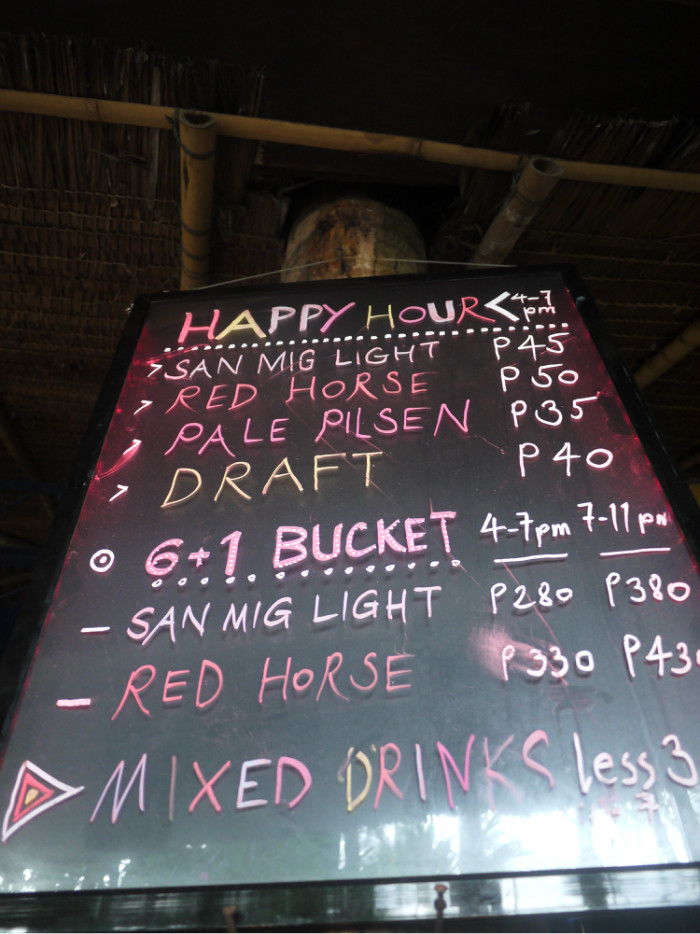 HAPPY HOUR < 4-7 pm
> SAN MIG LIGHT P45
> RED HORSE P50
> PALE PILSEN P35
> DRAFT P40
6+1 BUCKET 4-7pm 7-11pm
- SAN MIG LIGHT P280 P380
- RED HORSE P330 P430
MIXED DRINKS less 3